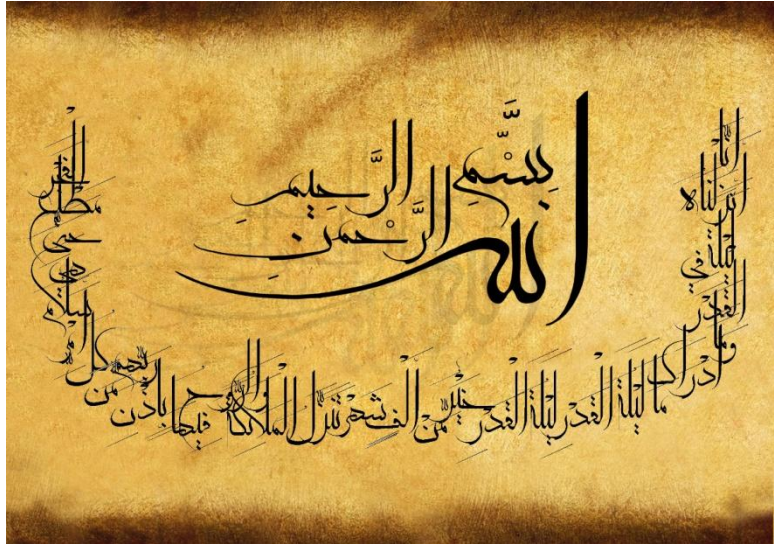 بِسْمِ اللّٰهِ الرَّحْمٰنِ الرَّحِيمِ
انا انزلناه في ليلة القدر وما ادراك ما ليلة القدر ليلة القدر خير من الف شهر تنزل الملائكة والروح فيها باذن ربهم من كل امر سلام هي حتى مطلع الفجر